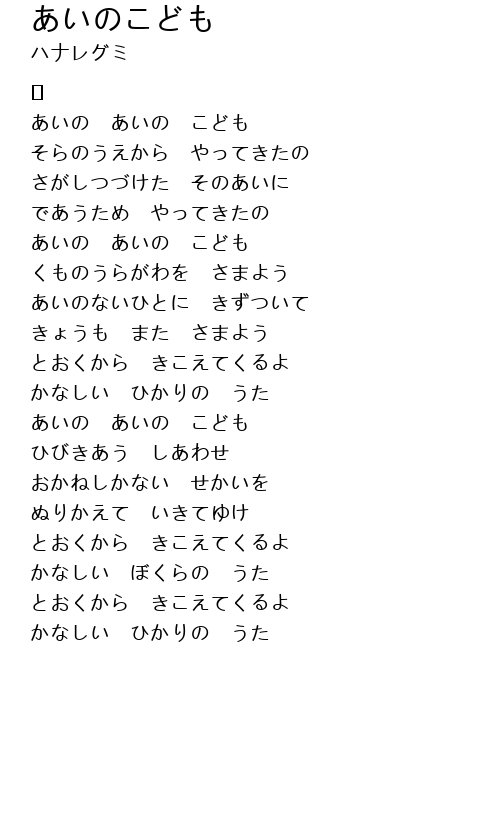 あいのこども
ハナレグミ
あいの　あいの　こども
そらのうえから　やってきたの
さがしつづけた　そのあいに
であうため　やってきたの
あいの　あいの　こども
くものうらがわを　さまよう
あいのないひとに　きずついて
きょうも　また　さまよう
とおくから　きこえてくるよ
かなしい　ひかりの　うた
あいの　あいの　こども
ひびきあう　しあわせ
おかねしかない　せかいを
ぬりかえて　いきてゆけ
とおくから　きこえてくるよ
かなしい　ぼくらの　うた
とおくから　きこえてくるよ
かなしい　ひかりの　うた